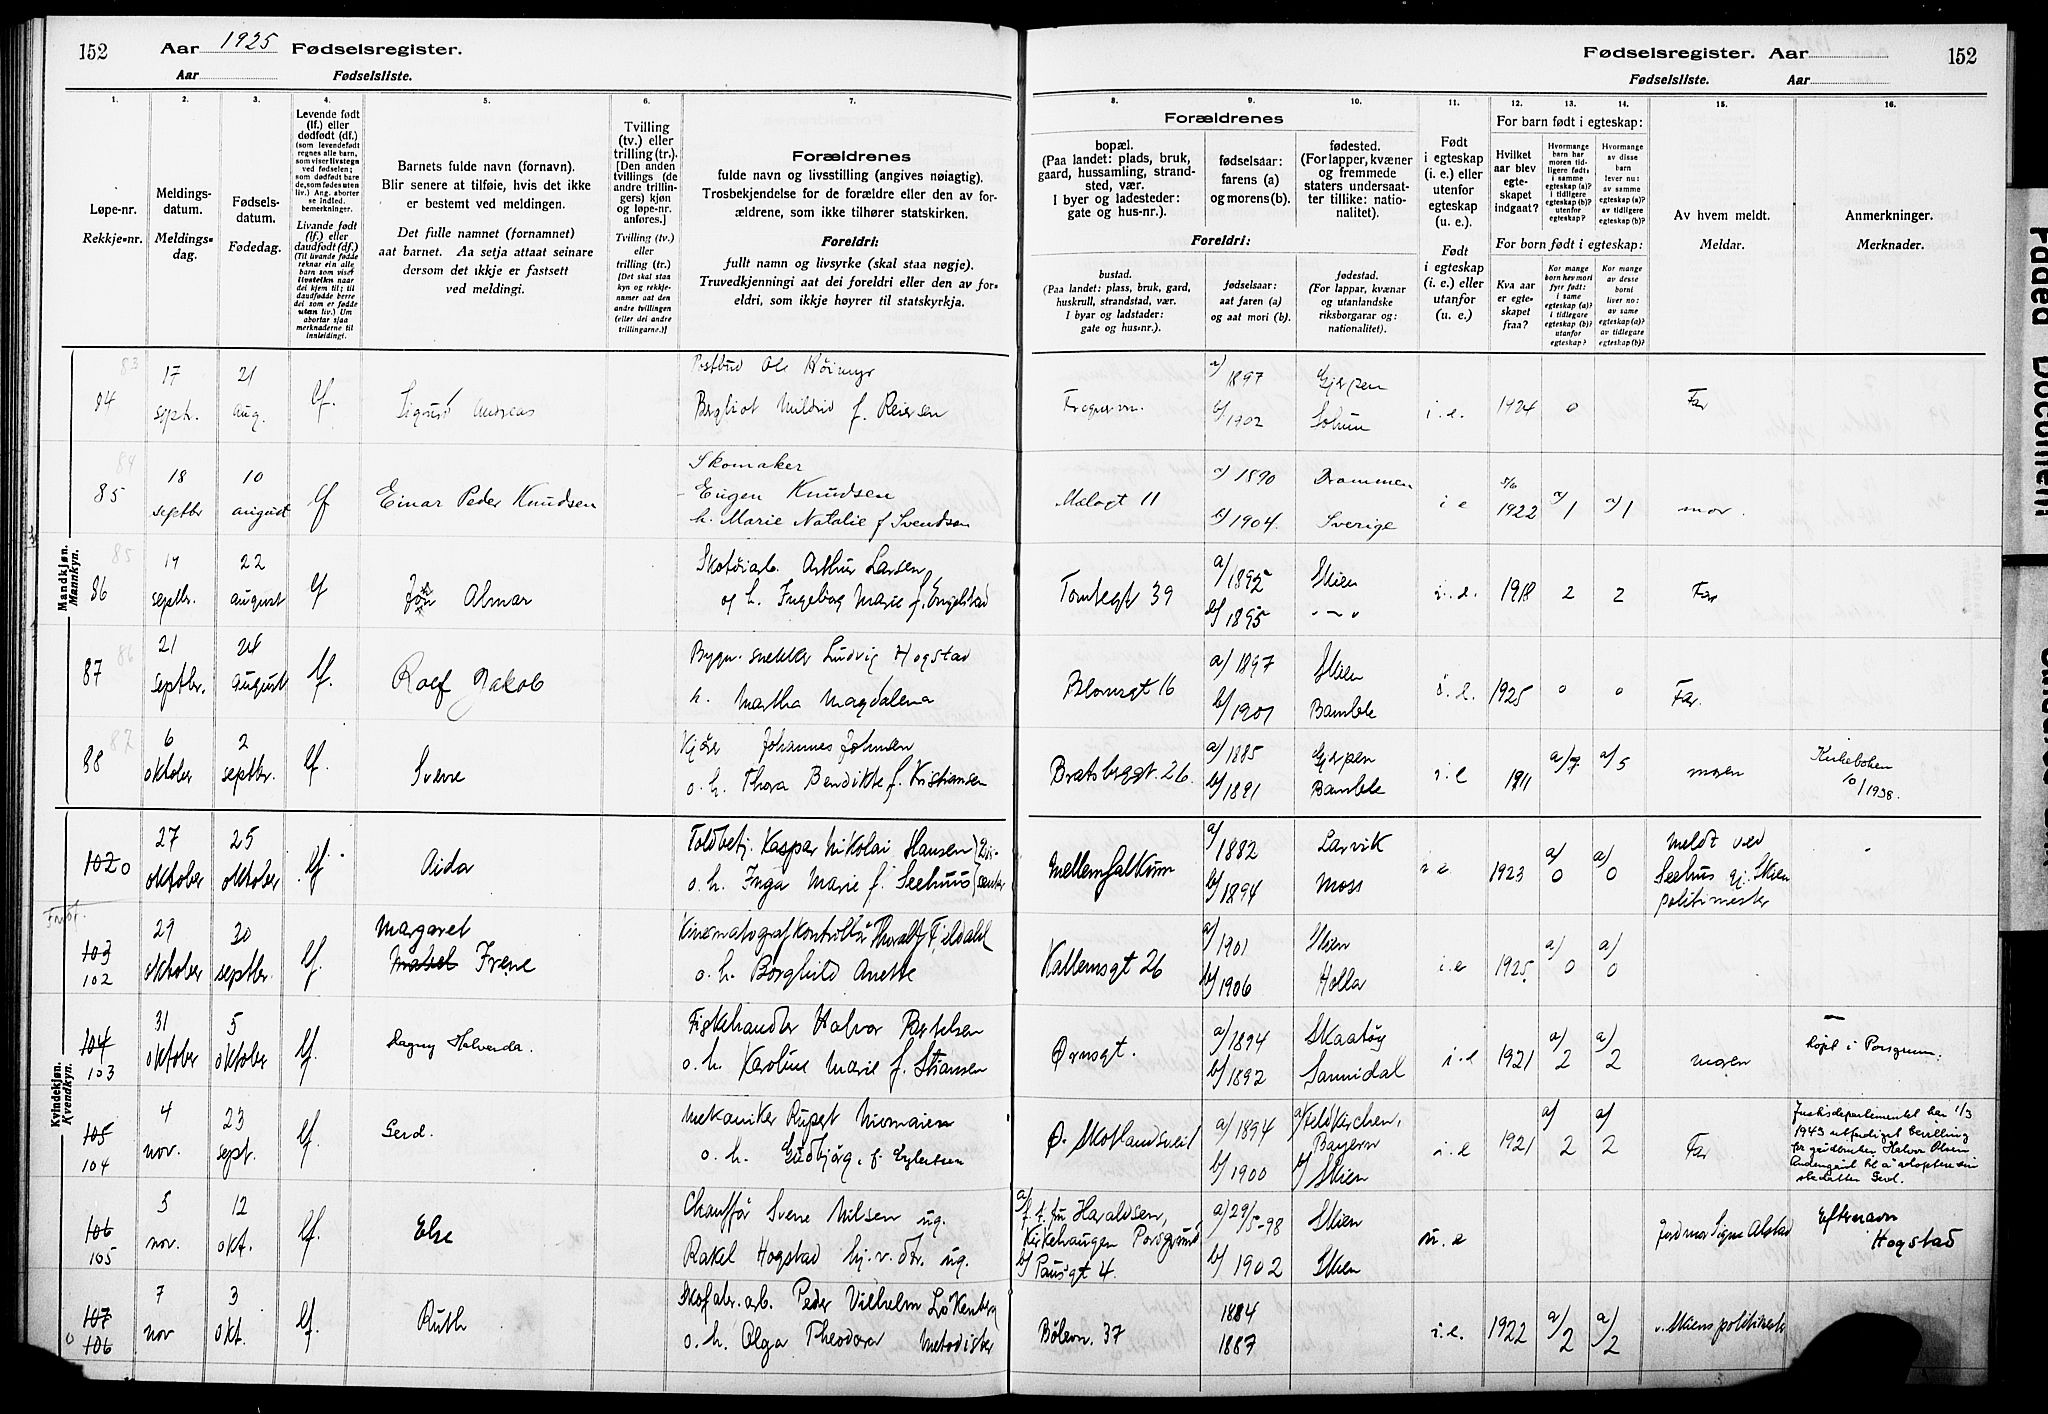 152 Aar 1925 Fødselsregister.
Aar Fødselsliste.
Fødselsregister. Aar 152
Fødselsliste. Aar
1. 2. 3. 4. 5. 6. 7.
8. 9. 10. 11. 12. 13. 14. 15. 16.
Løpe-nr.
Rekkje-nr.
Meldings-
datum.
Meldings-
dag.
Fødsels-
datum.
Fødedag.
Levende født
(lf.) eller
dødfødt (df.)
(som levendefødt
regnes alle barn,
som viser livstegn
ved fødselen;
som dødfødt bare
de, som fødes uten
liv.) Ang. aborter
se indled.
bemerkninger.
Livande født
(lf.) eller
daudfødt (df.)
(Til livande fødde
reknar ein alle
barn som viser
livsteikn naar
dei kjem til; til
daudfødde berre
dei som er fødde
utan liv.) Um
abortar sjaa
merknaderne til
innleidingi.
Barnets fulde navn (fornavn).
Blir senere at tilføie, hvis det ikke
er bestemt ved meldingen.
Det fulle namnet (fornamnet)
aat barnet. Aa setja attaat seinare
dersom det ikkje er fastsett
ved meldingi.
Tvilling
(tv.) eller
trilling (tr.).
[Den anden
tvillings (de
andre trillin-
gers) kjøn
og løpe-nr.
anføres.]
Tvilling (tv.)
eller
trilling (tr.)
[Det skal staa
kyn og rekkje-
numer aat den
andre tvillingen
(eller dei andre
trillingarne.)]
Forældrenes
fulde navn og livsstilling (angives nøiagtig).
Trosbekjendelse for de forældre eller den av for-
ældrene, som ikke tilhører statskirken.
Foreldri:
fullt namn og livsyrke (skal staa nøgje).
Truvedkjenningi aat dei foreldri eller den av for-
eldri, som ikkje høyrer til statskyrkja.
Forældrenes
bopæl.
(Paa landet: plads, bruk,
gaard, hussamling, strand-
sted, vær.
I byer og ladesteder:
gate og hus-nr.).
fødselsaar:
farens (a)
og morens (b).
fødested.
(For lapper, kvæner
og fremmede
staters undersaat-
ter tillike: natio-
nalitet).
Foreldri:
bustad.
(Paa landet: plass, bruk, gard,
huskrull, strandstad, vær.
I byar og ladstader:
gate og hus-nr.).
fødselsaar:
aat faren (a)
og aat mori (b).
fødestad.
(For lappar, kvænar
og utanlandske
riksborgarar og:
nationalitet).
Født
i egteskap
(i. e.) eller
utenfor
egteskap
(u. e.).
Født
i egteskap
(i. e.) eller
utanfor
(u. e.)
For barn født i egteskap:
Hvilket
aar blev
egte-
skapet
indgaat?
Hvormange
barn har
moren tid-
ligere født:
i samme
egteskap (a)?
i tidligere
egteskap (b)?
utenfor
egteskap?
Hvormange
av disse
barn
lever nu:
av samme
egteskap (a)?
av tidligere
egteskap (b)?
For born født i egteskap:
Kva aar
er egte-
skapet
fraa?
Kor mange
born hev mori
fyrr født:
i same
egteskap (a)?
i tidlegare
egteskap (b)?
utanfor
egteskap?
Kor mange
av desse
borni
liver no:
av same
egteskap (a)?
av tidlegare
egteskap (b)?
Av hvem meldt.
Meldar.
Anmerkninger.
Merknader.
Mandkjøn.
Mannkyn.
83
84 17 sept. 21 aug. lf. Sigurd Andreas
Postbud Ole Høimyr
Bergliot Mildrid f. Reiersen
a) 1897 Gjerpen
b) 1902 Solum i. e. 1924 0 Far
84
85 18 septbr 10 august lf Einar Peder Knudsen
Skomaker
Eugen Knudsen
h. Marie Natalie f Svendsen
Mælagt 11
a) 1890 Drammen
b) 1904. Sverige i e 1922 a) 1 a) 1 mor.
85
86 19 septbr. 22 august lf Jon Almar
Skotøiarb. Arthur Larsen
og h. Ingeborg Marie f. Engelstad
Tomtegt 39
a) 1892 Skien
b) 1895 i. e. 1918 2 2 Far
86
87 21 septbr. 24 august lf. Rolf Jakob
Bygn. snekker Ludvig Hogstad
h. Martha Magdalena
Blomsgt 16
a) 1897 Skien
b) 1901 Bamble i. e. 1925 0 0 Far.
87
88 6 oktober 2 septbr. lf. Sverre
Kjører Johannes Johnsen
o. h. Thora Bendikte f. Kristiansen
Bratsbergt. 26.
a) 1885 Gjerpen
b) 1891 Bamble i. e 1911 a) 7 a) 5 moren
Kirkeboken
10/1938.
Kvindekjøn.
Kvendkyn.
102 27 oktober 25 oktober lf. Aida
Toldbetj. Kaspar Nikolai Hansen
o. h. Inga Marie f. Seehuus
Mellem Falkum
a) 1882 Larvik
b) 1894 Moss i e 1923 a) 0 a) 0
meldt ved
Seehus gj. Skien
politimester
103
102 29 oktober 30 septbr. lf. Margaret
Mabel Irene
Kinematografkontrollør Thoralf Fjeldahl
o. h. Borghild Anette
Kallemsgt 26
a) 1901 Skien
b) 1906 Holla i. e 1925 a) 0 a) 0
104
103 31 oktober 5 oktober lf. Dagny Halverda.
Fiskehandler Halvor Bertelsen
o. h. Karoline Marie f. Stiansen
Ørnsgt.
a) 1894 Skaatøy
b) 1892 Sannidal i. e 1921 a) 2 a) 2 moren
Døpt i Porsgrunn.
105
104 4 nov. 23 sept. lf. Gerd.
Mekaniker Rupert
o. h. Gudbjørg. f. Eilertsen
Ø. Skotlandsvei 1
a) 1894 a) Feldkirchen, Bayern
b) 1900 b) Skien i. e 1921 a) 2 a) 2 Far
Justisdepartementet har 1/3
1943 utferdiget bevilling
for gårdbruker Halvor Olsen
til å adoptere sin
Gerd.
106
105 5 nov. 12 okt. lf. Else
Chauffør Sverre Nilsen ug.
Rakel Hogstad hj. v. dtr. ug.
a) Haraldsen,
Kirkehaugen Porsgrund
b) Pausgt 4.
a) 29/5-98 Skien
b) 1902 Skien u. e Jordmor Signe Alstad
Efternavn
Hogstad
107
106 7 nov 3 okt. lf. Ruth
Skofabr. arb. Peder Vilhelm Løkenberg
o. h. Olga Theodora Metodister
Bølevn. 37
1884
1887 i. e. 1922 a) 2 a) 2 v. Skiens politikam